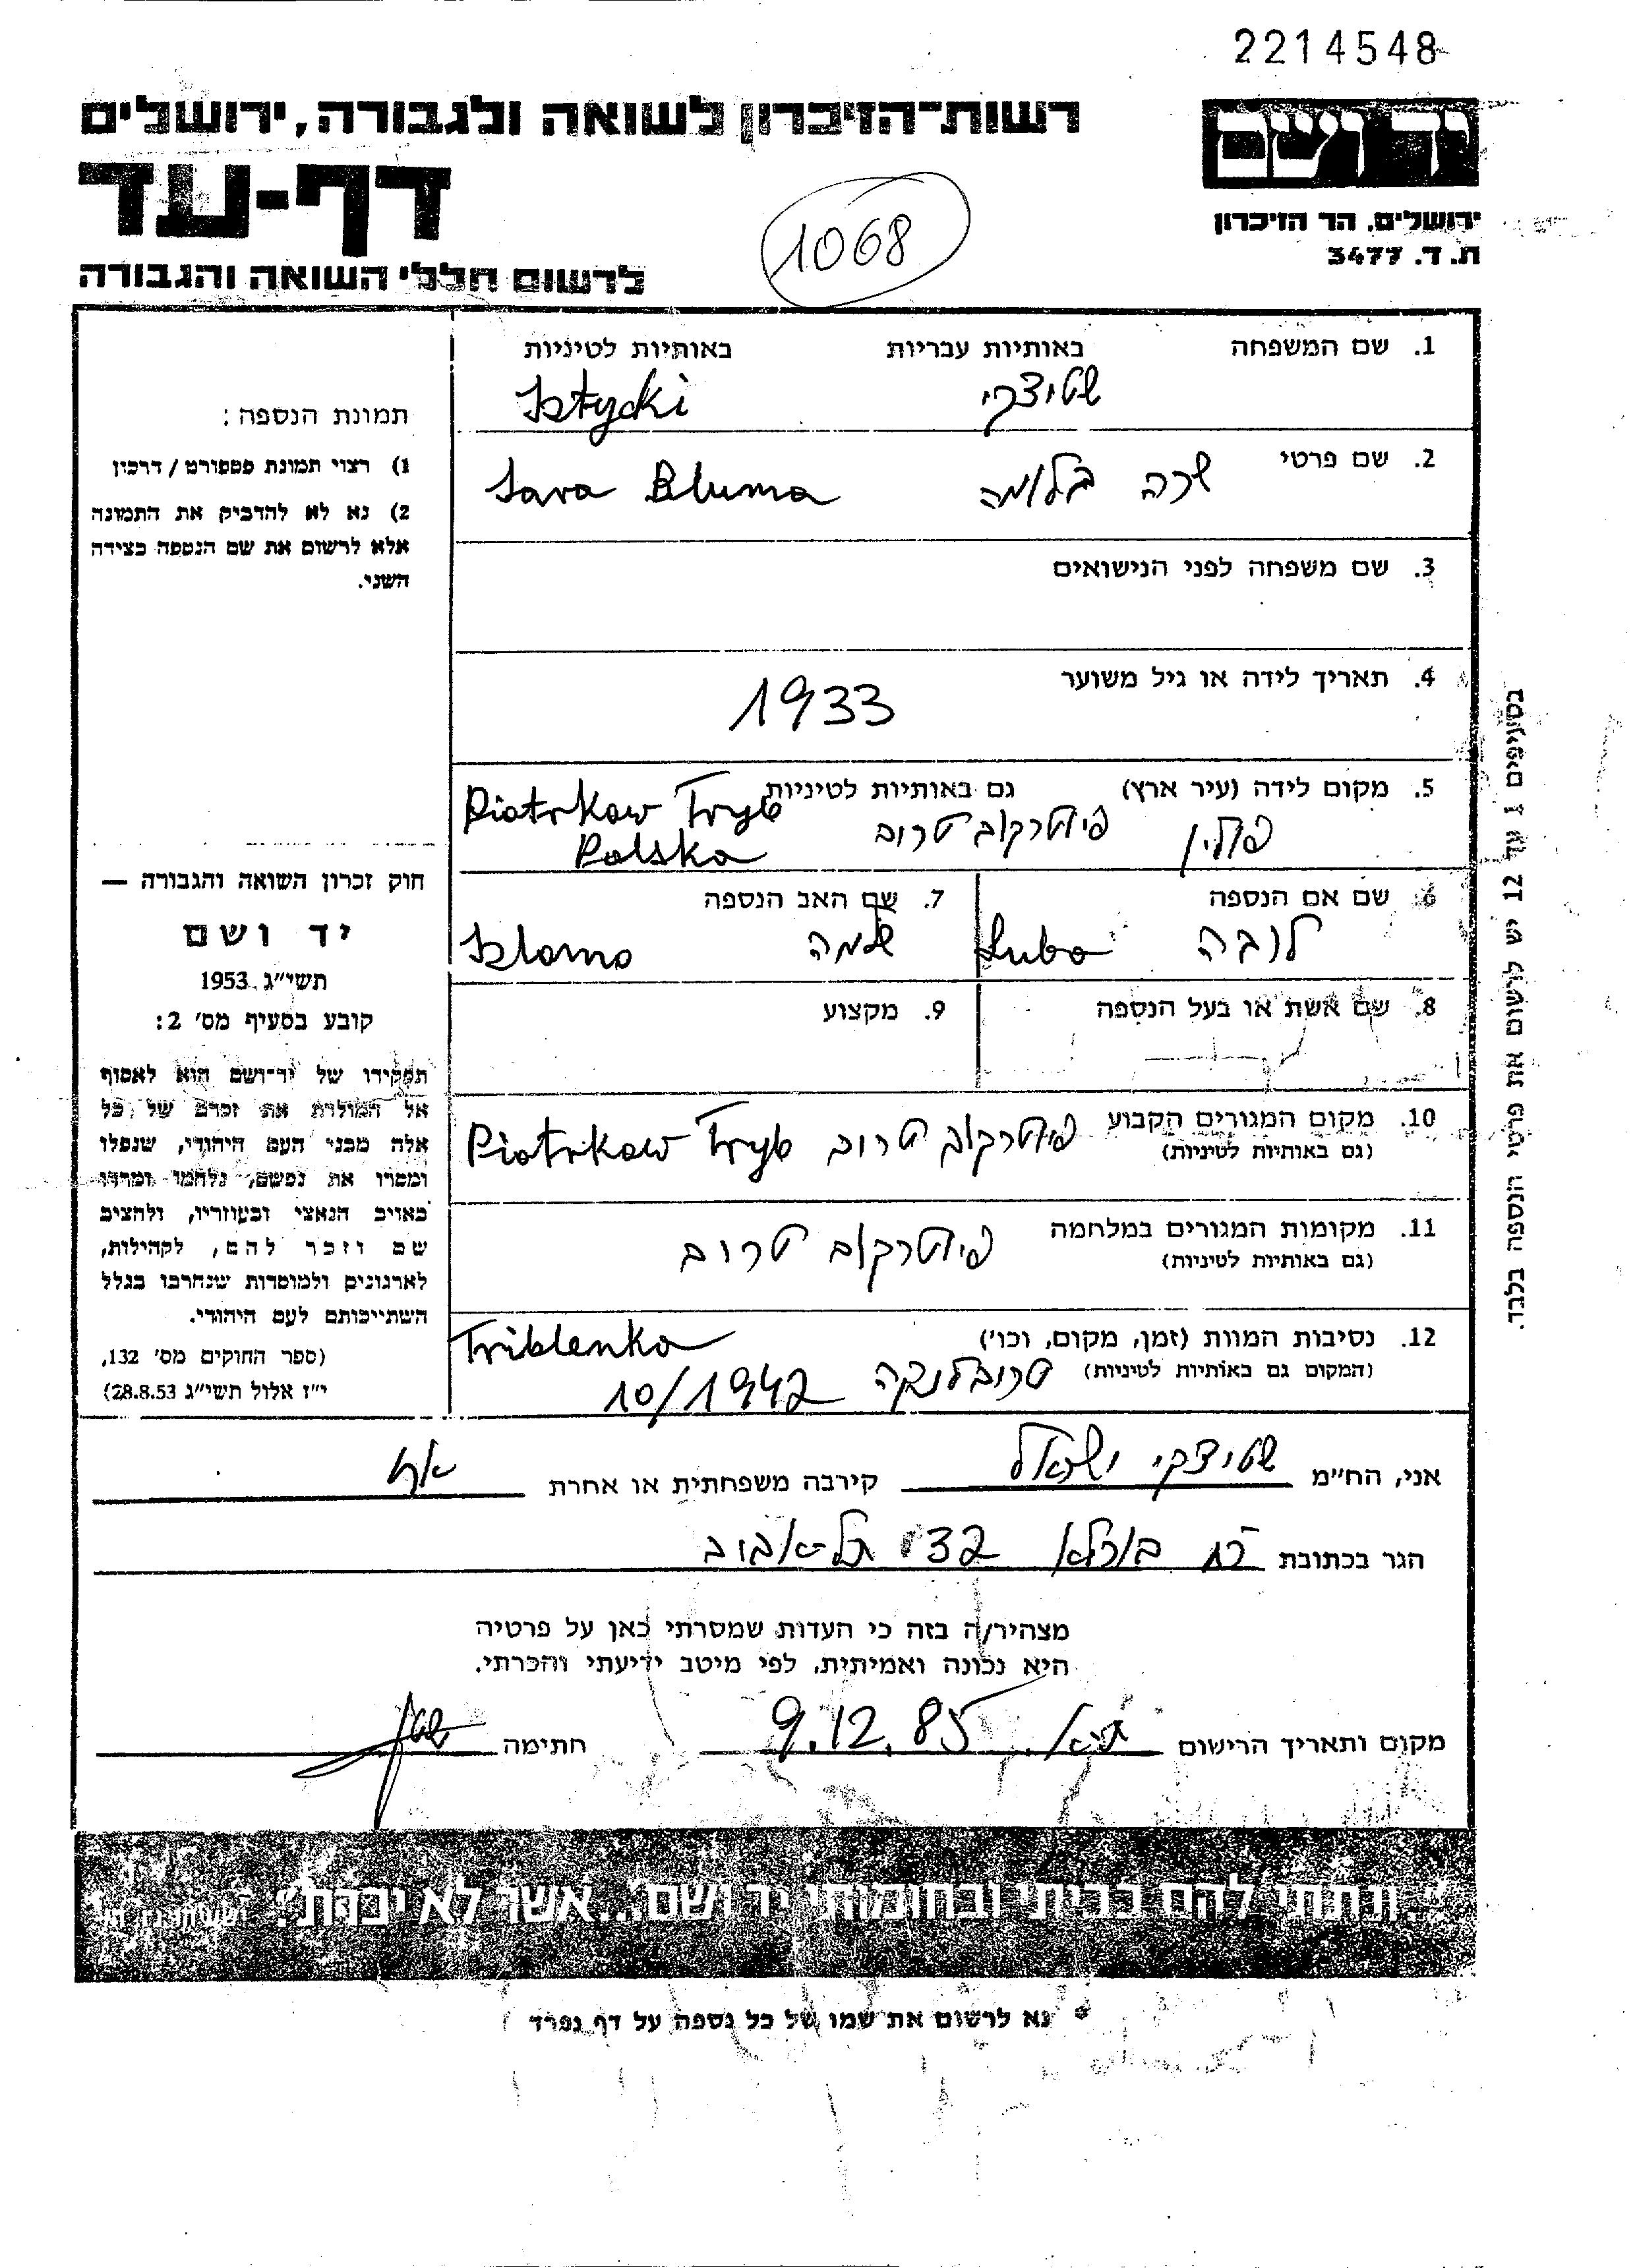 2214548
רשות־הזיכרון לשואה ולגבורה, ירושלים
יד ושם
דף-עד
ירושלים, הר הזיכרון
ת.ד. 3477
לרשום חללי השואה והגבורה
1068
1. שם המשפחה באותיות עבריות באותיות לטיניות
שטיצקי Sztycki
2. שם פרטי שרה בלומה Sara Bluma
3. שם משפחה לפני הנישואים
4. תאריך לידה או גיל משוער
1933
5. מקום לידה (עיר ארץ) גם באותיות לטיניות
פולין פיוטרקוב טרוב Piotrkow Tryb
Polska
6. שם אם הנספה
לובה Luba
7. שם האב הנספה
שלמה Szlama
8. שם אשת או בעל הנספה
9. מקצוע
10. מקום המגורים הקבוע
(גם באותיות לטיניות)
פיוטרקוב טרוב Piotrkow Tryb
11. מקומות המגורים במלחמה
(גם באותיות לטיניות)
פיוטרקוב טרוב
12. נסיבות המוות (זמן, מקום, וכו')
(המקום גם באותיות לטיניות)
Triblenka
טרובלנקה 10/1942
תמונת הנספה:
1) רצוי תמונת פספורט / דרכון
2) נא לא להדביק את התמונה
אלא לרשום את שם הנספה בצידה
השני.
חוק זכרון השואה והגבורה —
יד ושם
תשי״ג 1953
קובע בסעיף מס׳ 2:
תפקידו של יד־ושם הוא לאסוף
אל המולדת את זכרם של כל
אלה מבני העם היהודי, שנפלו
ומסרו את נפשם, נלחמו ומרדו
באויב הנאצי ובעוזריו, ולהציב
שם וזכר להם, לקהילות,
לארגונים ולמוסדות שנחרבו בגלל
השתייכותם לעם היהודי.
(ספר החוקים מס׳ 132,
י״ז אלול תשי״ג 28.8.53)
בסעיפים 1 עד 12 יש לרשום את פרטי הנספה בלבד.
אני, הח״מ שטיצקי ישראל קירבה משפחתית או אחרת אח
הגר בכתובת 32 תל-אביב
מצהיר/ה בזה כי העדות שמסרתי כאן על פרטיה
היא נכונה ואמיתית, לפי מיטב ידיעתי והכרתי.
מקום ותאריך הרישום ת״א. 9.12.85 חתימה
״...ונתתי להם בביתי ובחומותי יד ושם...אשר לא יכרת״.
* נא לרשום את שמו של כל נספה על דף נפרד